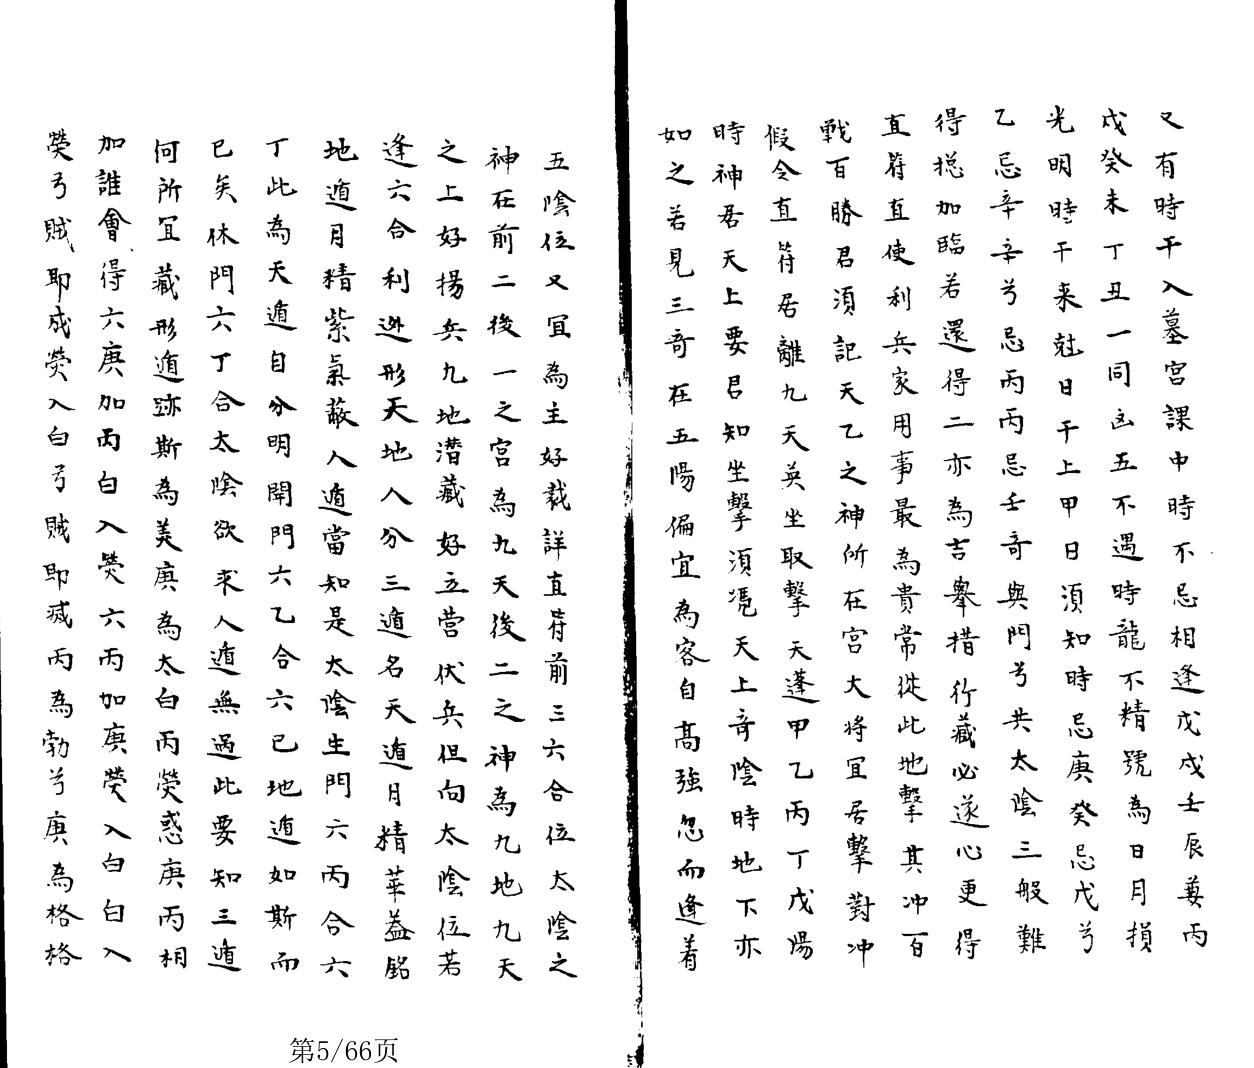 又有時干入墓宮課中時不忌相逢戊戌壬辰兼丙
戌癸未丁丑一同凶五不遇時龍不精號為日月損
光明時干来尅日干上甲日須知時忌庚癸忌戊兮
乙忌辛辛兮忌丙丙忌壬奇與門兮共太陰三般難
得揔加臨若還得二亦為吉舉措行藏必遂心更得
直符直使利兵家用事最為貴常從此地擊其冲百
戰百勝君須記天乙之神所在宮大將宜居擊對冲
假令直符居離九天英坐取擊天蓬甲乙丙丁戊陽
時神居天上要君知坐擊須凴天上奇陰時地下亦
如之若見三奇在五陽偏宜為客自高強忽而逢着
五陰位又宜為主好裁詳直符前三六合位太陰之
神在前二後一之宮為九天後二之神為九地九天
之上好揚兵九地潜藏好立營伏兵但向太陰位若
逢六合利逃形天地人分三遁名天遁月精華葢銘
地遁月精紫氣蔽人遁當知是太陰生門六丙合六
丁此為天遁自分明開門六乙合六己地遁如斯而
已矣休門六丁合太陰欲求人遁無過此要知三遁
何所宜藏形遁跡斯為美庚為太白丙熒惑庚丙相
加誰會得六庚加丙白入熒六丙加庚熒入白白入
熒兮賊即成熒入白兮賊即滅丙為勃兮庚為格格
第5/66页